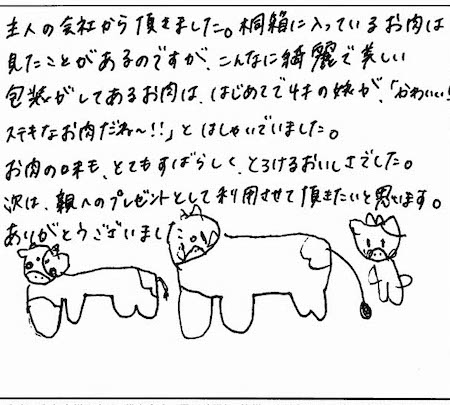 主人の会社から頂きました。桐箱に入っているお肉は
見たことがあるのですが、こんなに綺麗で美しい
包装がしてあるお肉は、はじめてで4才の娘が、「かわいい!
ステキなお肉だね〜!!」とはしゃいでいました。
お肉の味も、とてもすばらしく、とろけるおいしさでした。
次は、親へのプレゼントとして利用させて頂きたいと思います。
ありがとうございました